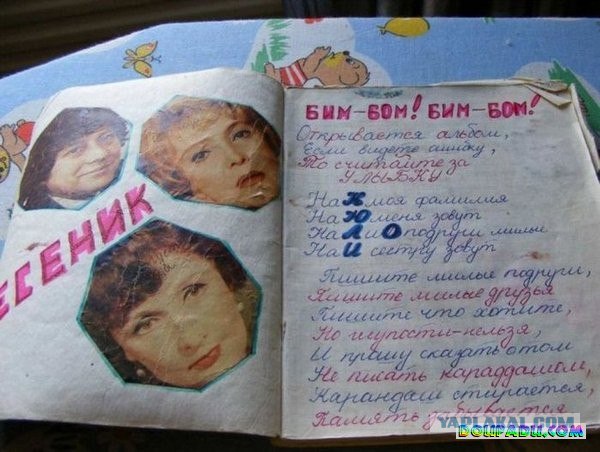 ЕСЕНИК
БИМ-БОМ! БИМ-БОМ!
Открывается альбом,
Если видете ошибку,
То считайте за
УЛЫБКУ
На К моя фамилия
На Ю меня зовут
На Л и О подруги милые
На И сестру зовут
Пишите милые подруги,
Пишите милые друзья
Пишите что хотите,
Но глупости-нельзя,
И прошу сказать о том
Не писать караддашом,
Карандаш стирается,
Память забывается
YAPLAKAL.COM
DOUPADU.COM